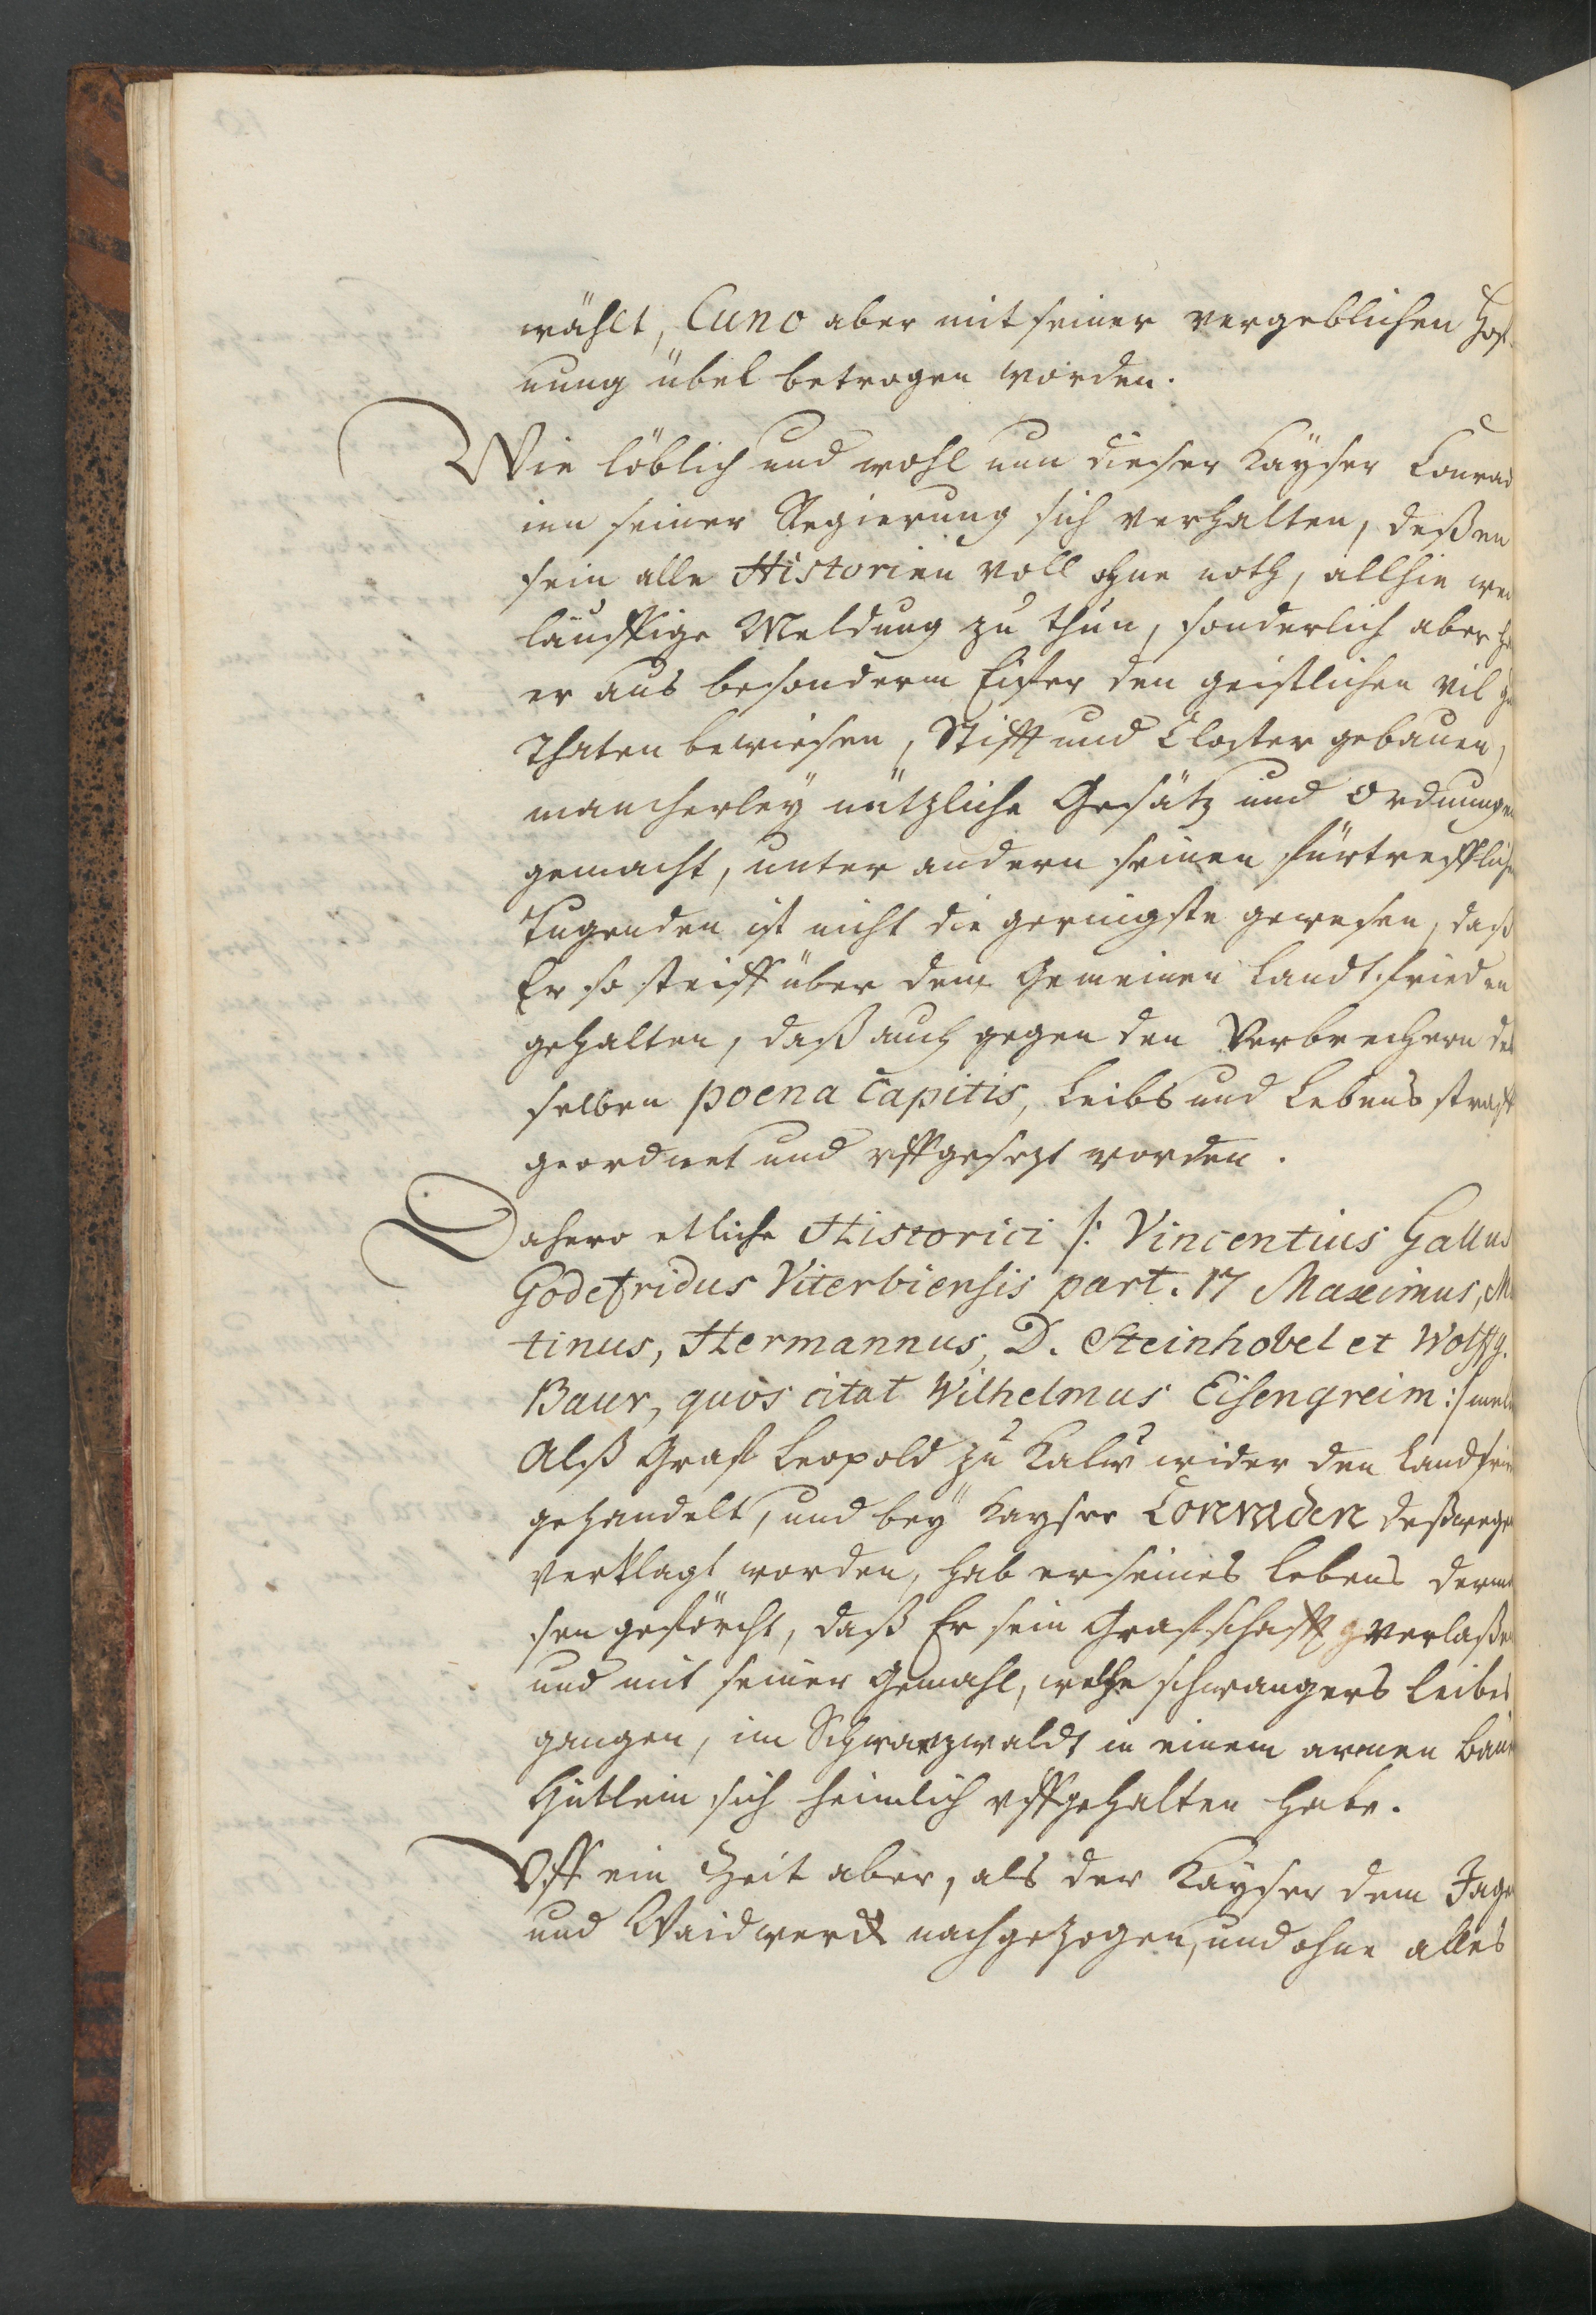 wählt, Cuno aber mit seiner vergeblichen Hof-
nung übel betrogen worden.
Wie löblich und wohl nun dieser Kayser Conrad
inn seiner Regierung sich verhalten, deßen
sein alle Historien voll ohne noth, allhie wei
läuffige Meldung zu thun, sonderlich aber ha
er aus besonderm Eifer den geistlichen vil gu
thaten bewiesen, Stifft und Closter gebauen,
mancherleÿ nützliche Gesätz und Ordnungen
gemacht, unter andern seinen fürtrefflichen
Tugenden ist nicht die geringste gewesen, daß
Er so steiff über dem Gemeinen Landtfrieden
gehalten, daß auch gegen den Verbrechern des
selben poena capitis, Leibs und Lebens straff
geordnet und uffgesezt worden.
Dahero etliche Historici /: Vincentius Gallus
Godefridus Viterbiensis part. 17 Maximus, Ma
tinus, Hermannus, D. Steinhobel et Wolffg.
Baur, quos citat Wilhelmus Eisengreim :/ meld
Alß Graf Leopold zu Kalw wider den Landfrie
gehandelt, und beÿ Kayser Conraden deßwegen
verklagt worden, hab er seines Lebens derma
sen geförcht, daß Er sein Grafschafft verlaßen
und mit seiner Gemahl, welche schwangers Leibes
gangen, im Schwarzwaldt in einem armen Baur
Hütlein sich heimlich uffgehalten habe.
Uff ein Zeit aber, als der Kayser dem Jage
und Waidwerck nachgezogen, und ohne alles